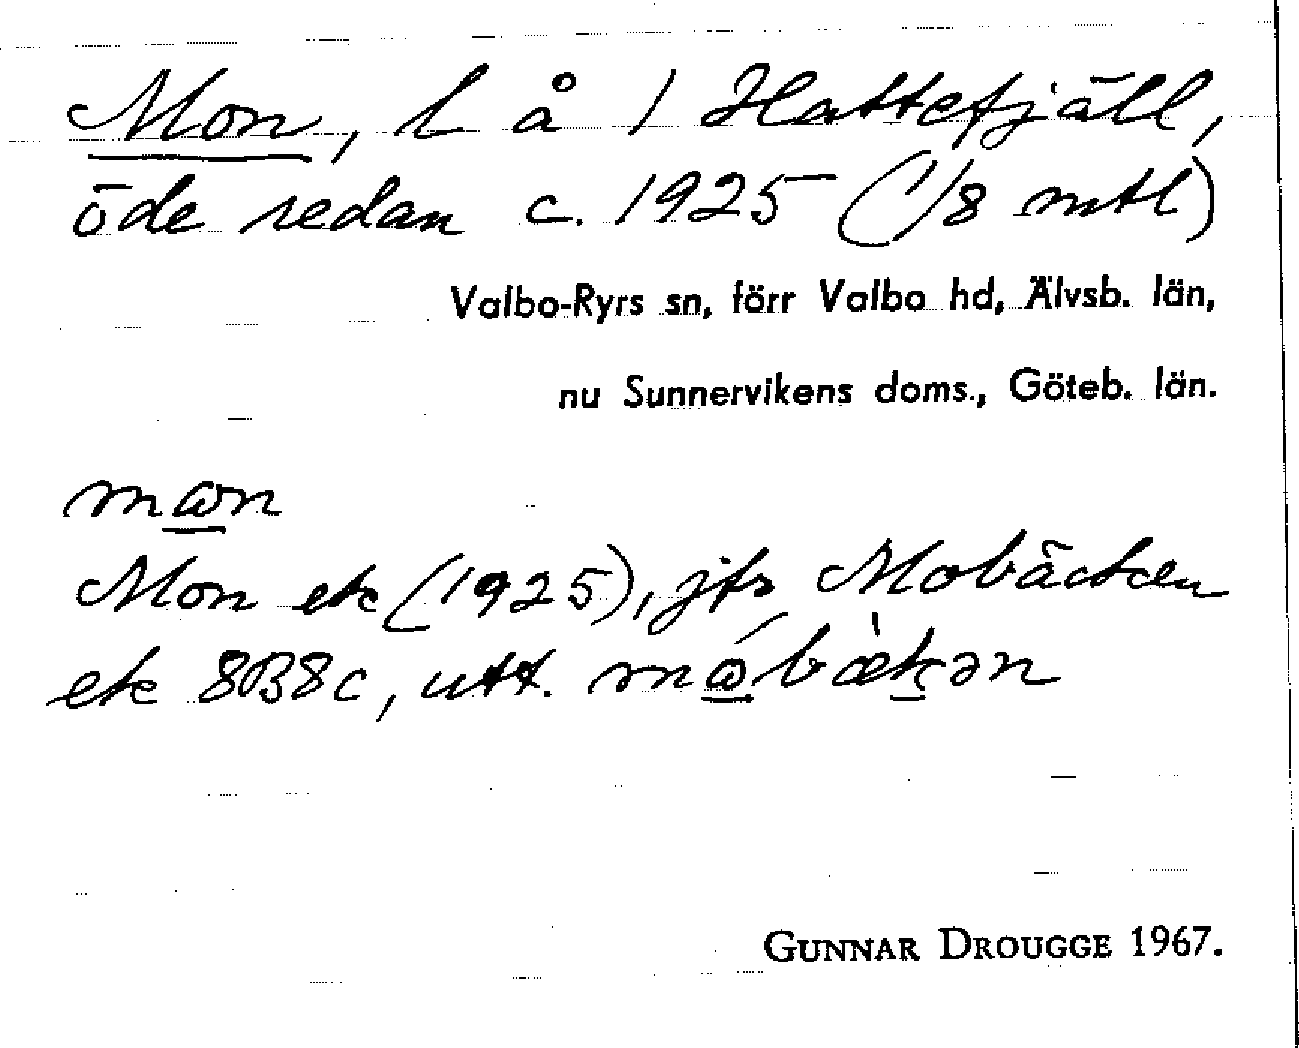 Mon, l å 1 Hattefjäll,
öde redan c. 1925 (1/8 mtl)
Valbo-Ryrs sn, förr Valbo hd, Älvsb. län,
nu Sunnervikens doms., Göteb. län.
mωn
Mon ek (1925), jfr Mobäcken
ek 8B8c, utt.
GUNNAR DROUGGE 1967.